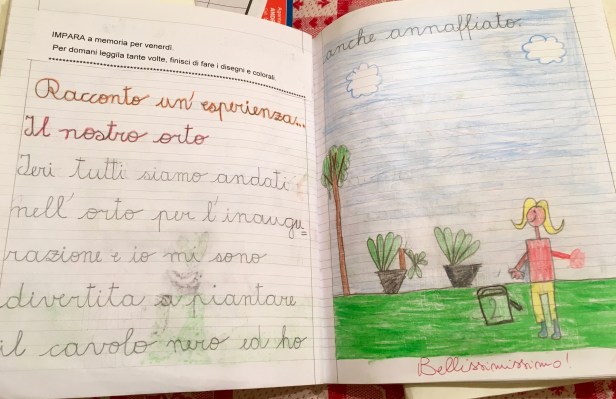 IMPARA a memoria per venerdì.
Per domani leggila tante volte, finisci di fare i disegni e colorali.
Racconto un'esperienza...
Il nostro orto
Ieri tutti siamo andati
nell'orto per l'inaugu=
razione e io mi sono
divertita a piantare
il cavolo nero ed ho
anche annaffiato.
2
Bellissimissimo!